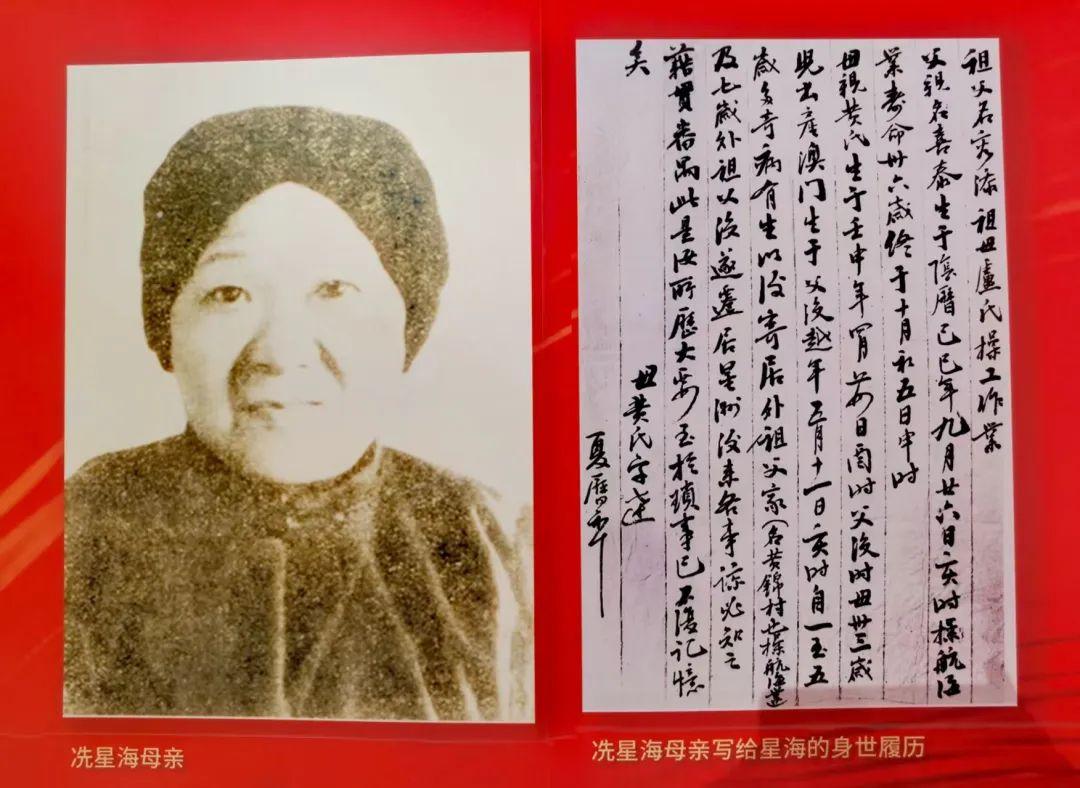 祖父名秀添祖母盧氏操工作業
父親名喜泰生于陰曆己巳年九月廿六日亥时操航海
業寿命卅六歳终于十月初五日申时
母親黄氏生于壬申年 日酉时父没时母卅三歳
児出産澳门生于父没越年五月十一日亥时自一至五
歳多奇病有生以没寄居外祖父家(名黄錦村也操航海業
及七歳外祖父没遂遷居星洲没来各事諒必知之
藉貫番禺此是汝所歷大 至於瑣事已不復記憶
矣
母黄氏字
夏曆
冼星海母亲
冼星海母亲写给星海的身世履历